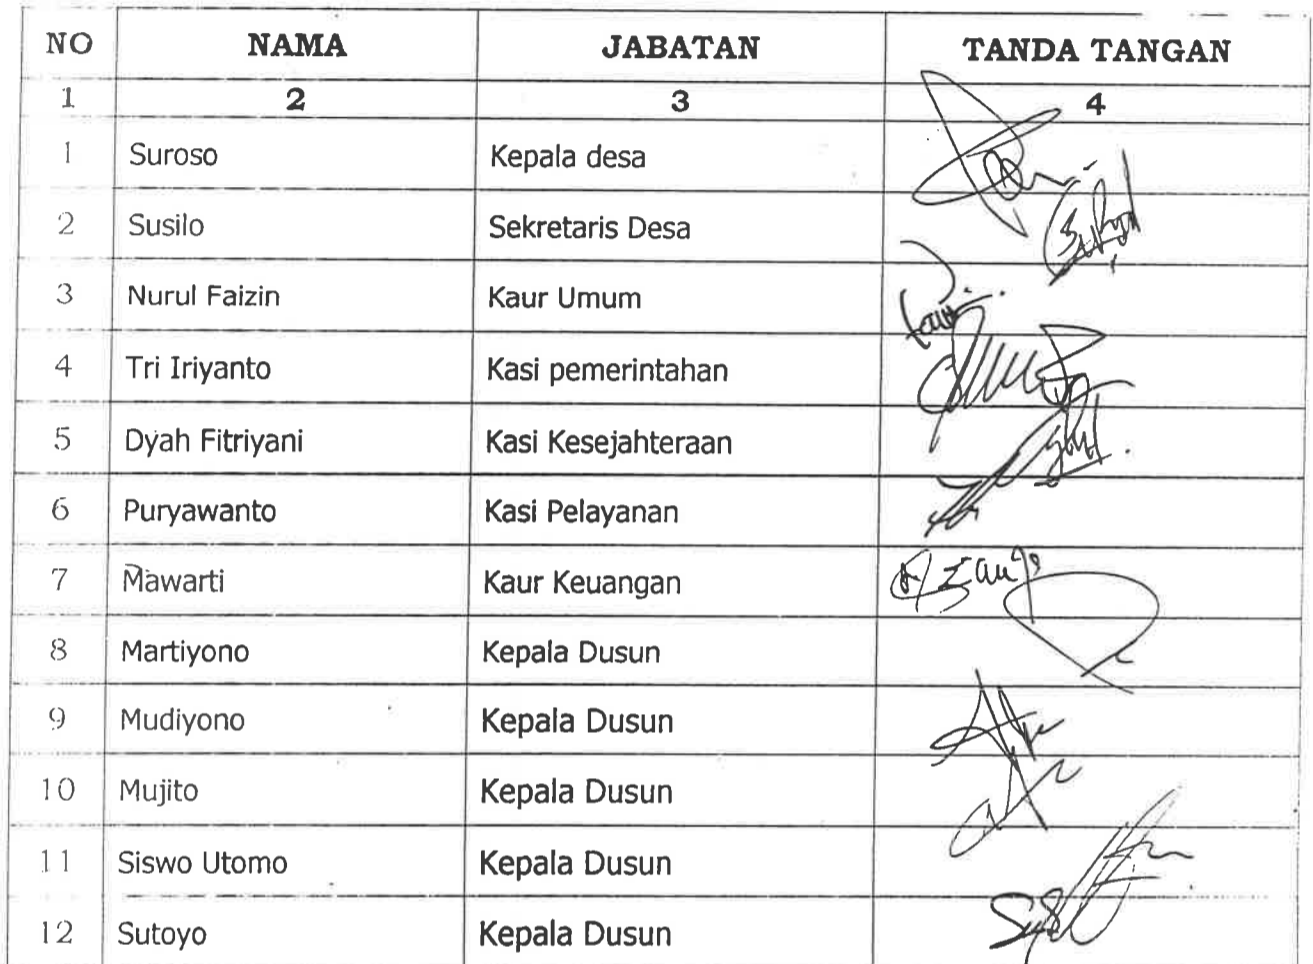 NO NAMA JABATAN TANDA TANGAN
1 2 3 4
1 Suroso Kepala desa
2 Susilo Sekretaris Desa
3 Nurul Faizin Kaur Umum
4 Tri Iriyanto Kasi pemerintahan
5 Dyah Fitriyani Kasi Kesejahteraan
6 Puryawanto Kasi Pelayanan
7 Mawarti Kaur Keuangan
8 Martiyono Kepala Dusun
9 Mudiyono Kepala Dusun
10 Mujito Kepala Dusun
11 Siswo Utomo Kepala Dusun
12 Sutoyo Kepala Dusun